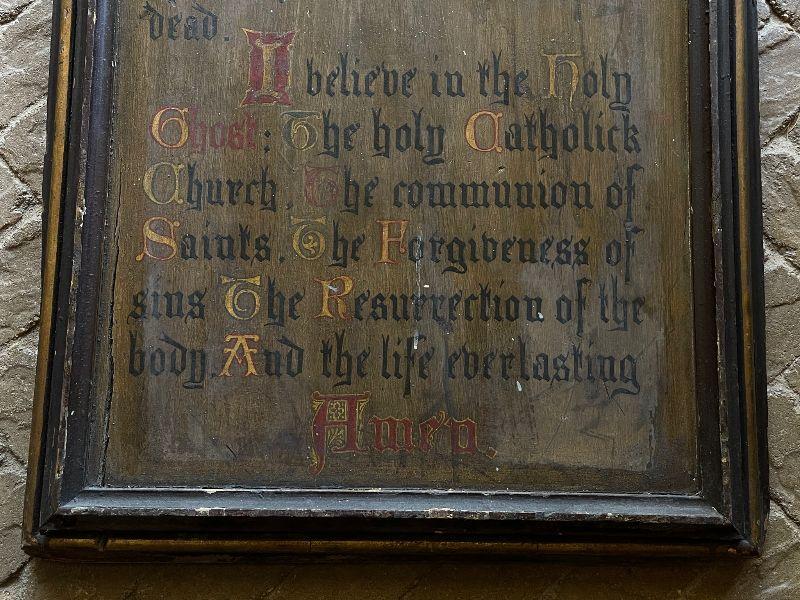 dead.
I believe in the Holy
Ghost: The holy Catholick
Church, The communion of
Saints, The Forgiveness of
sins The Resurrection of the
body. And the life everlasting
Amen.